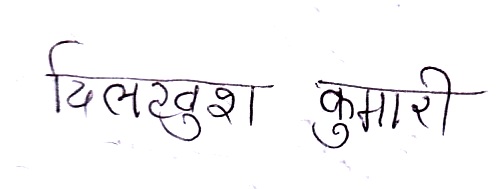 दिलखुश कुमारी